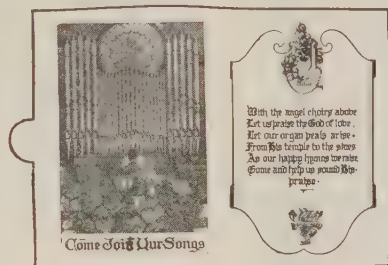 Come Join Our Songs
With the angel choirs above
Let us praise the God of love,
Let our organ peals arise
From His temple to the skies
As our happy hymns we raise
Come and help us sound His
praise.